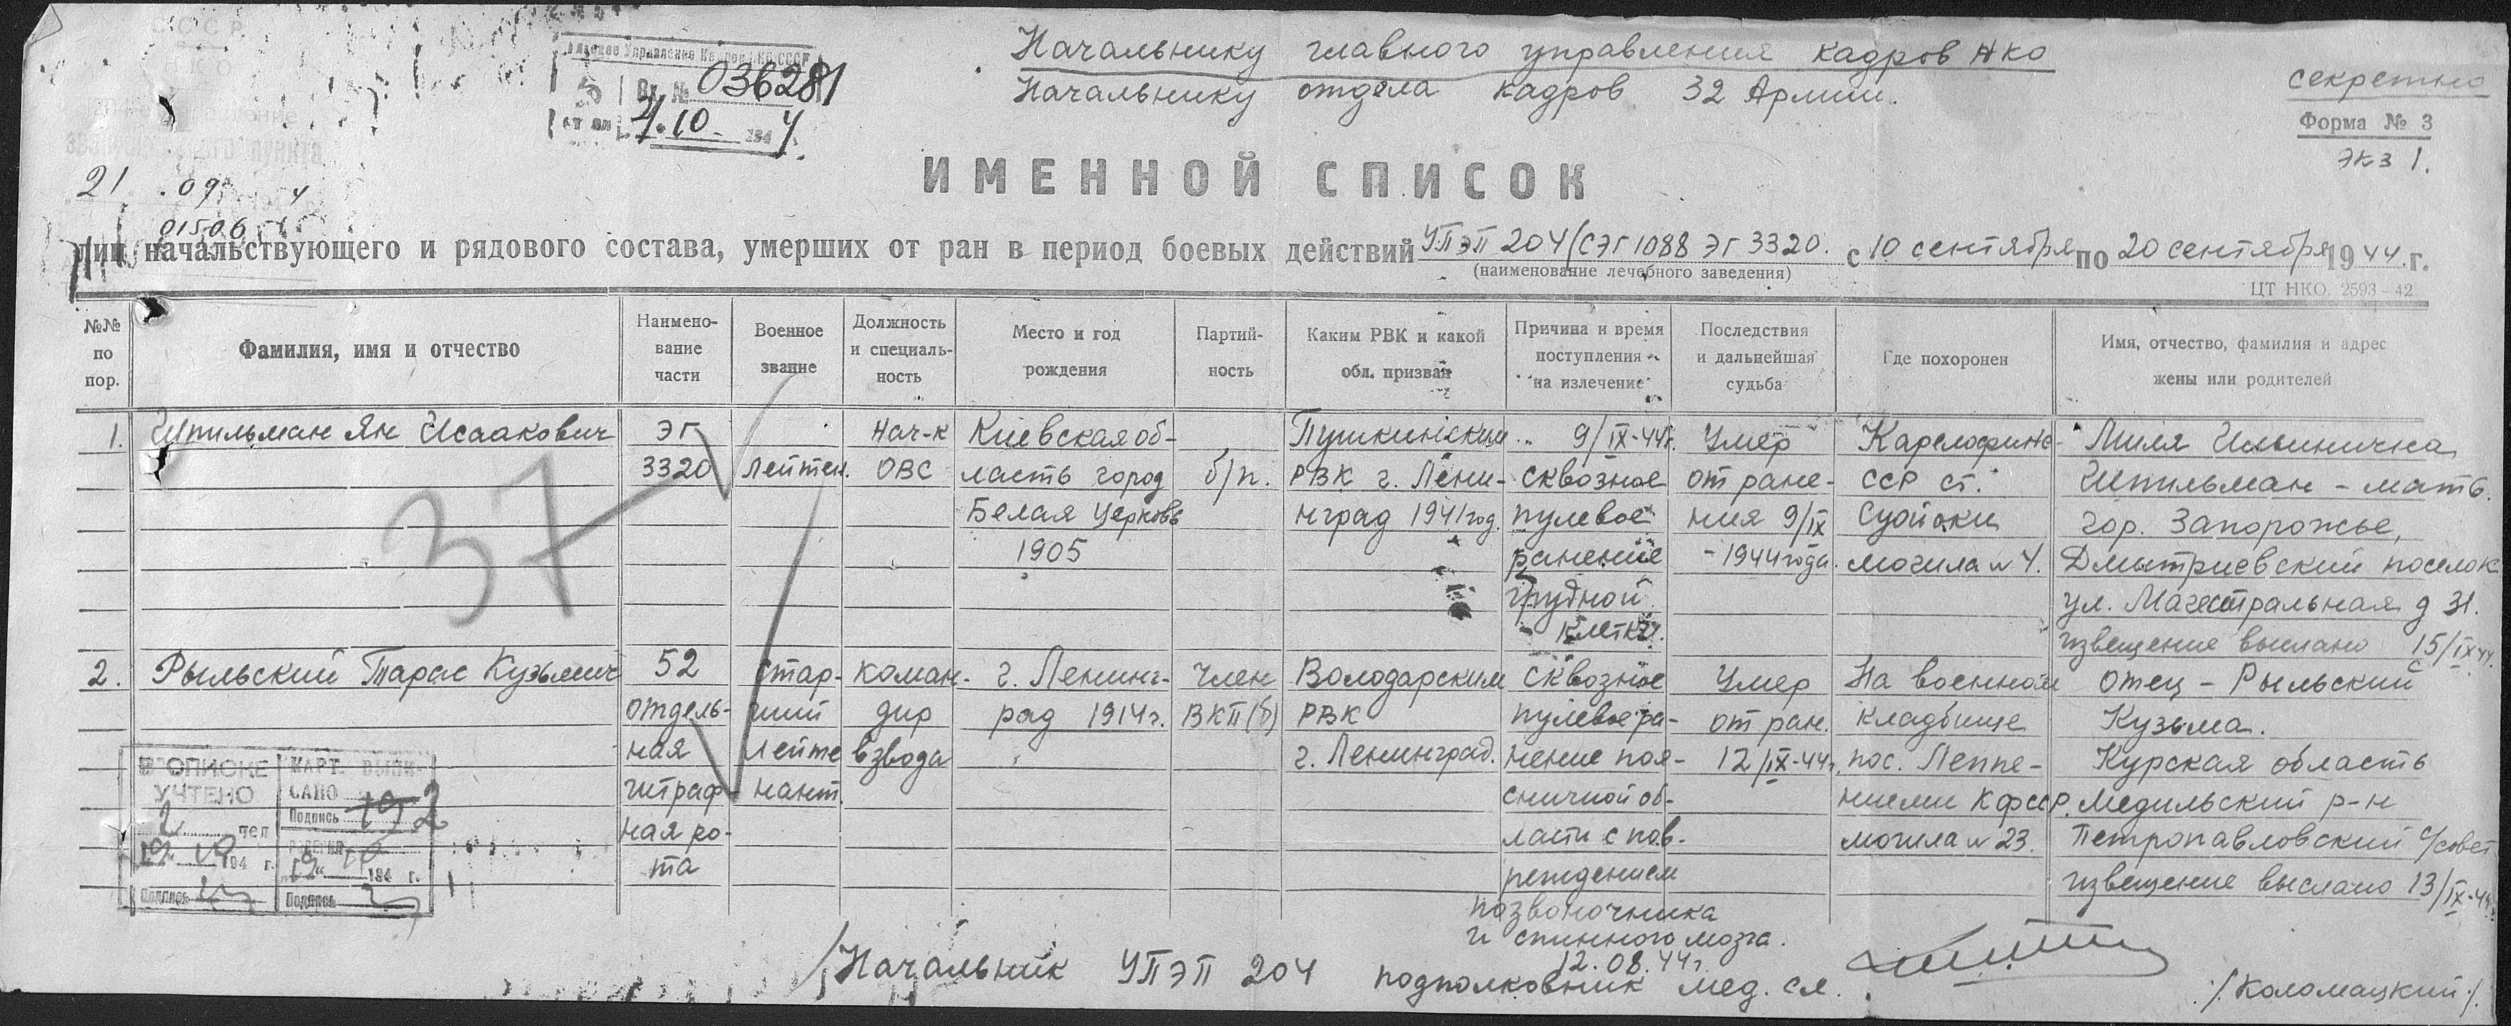 СССР
НКО
Главное Управление Кадров НКО СССР
Вх. № 036281
4.10 1944
Начальнику главного управления кадров НКО
Начальнику отдела кадров 32 Армии.
секретно
Форма № 3
экз 1.
пункта
21 .09 4
01506
ИМЕННОЙ СПИСОК
лиц начальствующего и рядового состава, умерших от ран в период боевых действий УПЭП 204 (СЭГ 1088 ЭГ 3320. с 10 сентября по 20 сентября 1944 г.
(наименование лечебного заведения)
ЦТ НКО. 2593—42
№№ по пор.
Фамилия, имя и отчество
Наимено-
вание
части
Военное
звание
Должность
и специаль-
ность
Место и год
рождения
Партий-
ность
Каким РВК и какой
обл. призван
Причина и время
поступления
на излечение
Последствия
и дальнейшая
судьба
Где похоронен
Имя, отчество, фамилия и адрес
жены или родителей
1.
Шпильман Ян Исаакович
ЭГ
3320
Лейтен.
Нач-к
ОВС
Киевская об-
ласть город
Белая Церковь
1905
б/п.
Пушкинским
РВК г. Лени-
нград 1941год.
9/IX-44г.
сквозное
пулевое
ранение
грудной
клетки.
Умер
от ране-
ния 9/IX
-1944года.
Карелофинс-
ССР ст.
Суойоки
могила № 4.
Лиля Ильинична
Шпильман - мать.
гор. Запорожье,
Дмитриевский поселок
ул. Магистральная д 31.
извещение выслано 15/IX44.
37
2.
Рыльский Тарас Кузьмич
52
отдель-
ная
штраф-
ная ро-
та
Стар-
ший
лейте
нант.
коман-
дир
взвода
г. Ленинг-
рад 1914г.
Член
ВКП(б)
Володарским
РВК
г. Ленинград.
сквозное
пулевое ра-
нение поя-
сничной об-
ласти с пов-
реждением
позвоночника
и спинного мозга.
12.08.44г
Умер
от ран.
12/IX-44г.
На военном
кладбище
пос. Леппе-
ниеми КФССР.
могила № 23.
отец - Рыльский
Кузьма.
Курская область
Медильский р-н
Петропавловский с/совет
извещение выслано 13/IX-44г.
В ОПИСКЕ
УЧТЕНО
2 чел
194 г.
Подпись
КАРТ. ВЫПИ-
САНО 2
Подпись
194 г.
Подпись
Начальник УПЭП 204 подполковник мед. сл.
/Коломацкий/.